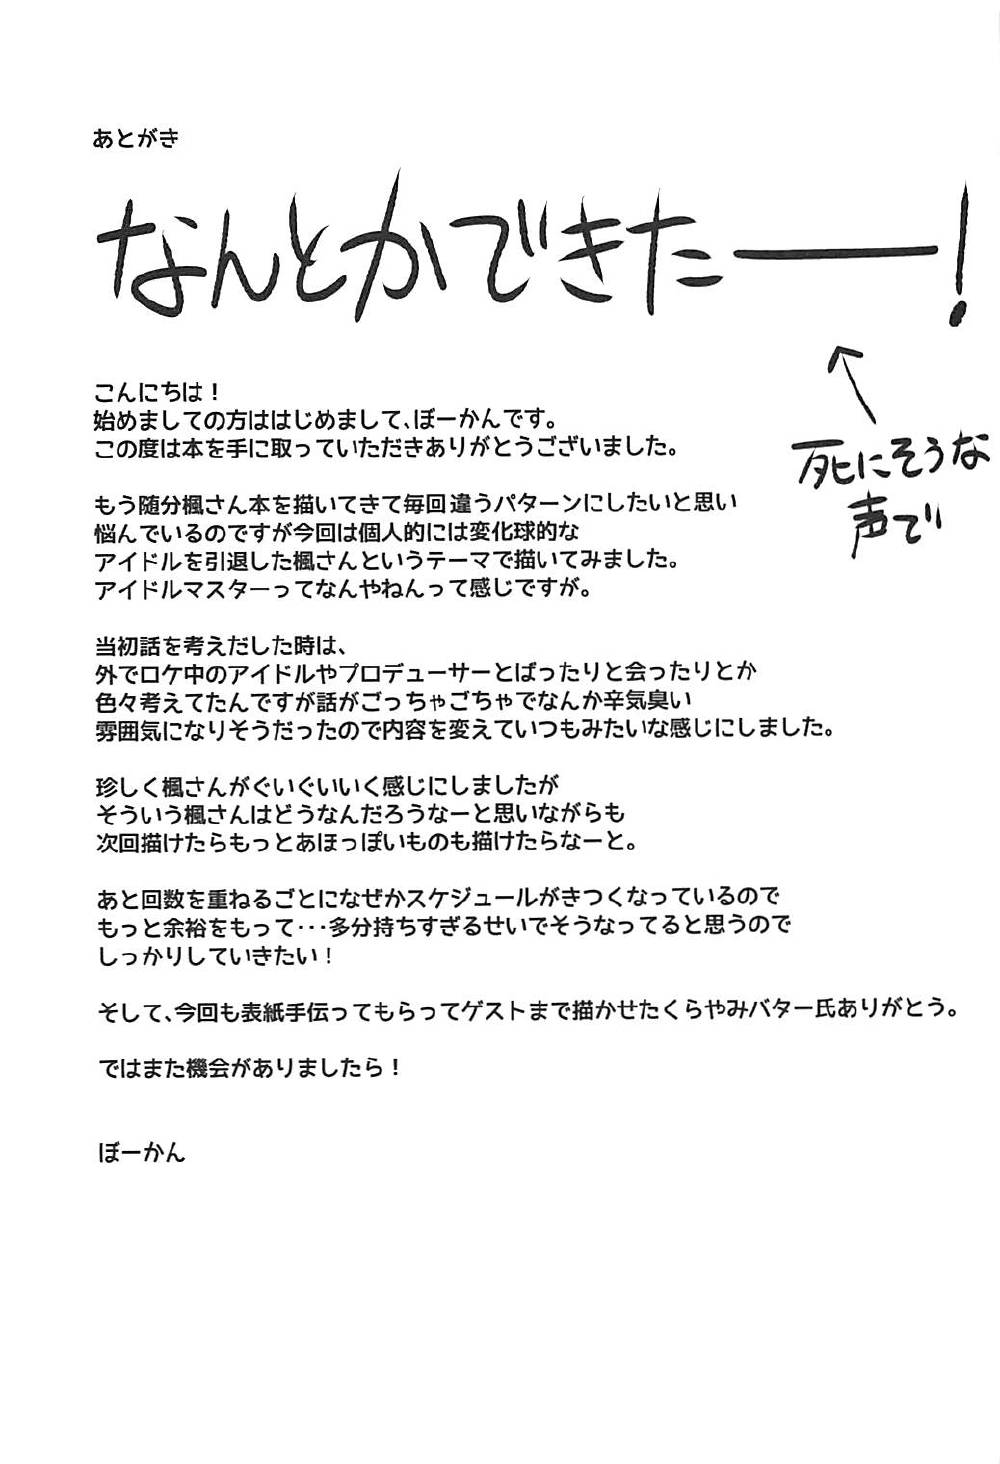 あとがき
なんとかできたー！
死にそうな
声で
こんにちは！
始めましての方ははじめまして、ぼーかんです。
この度は本を手に取っていただきありがとうございました。
もう随分楓さん本を描いてきて毎回違うパターンにしたいと思い
悩んでいるのですが今回は個人的には変化球的な
アイドルを引退した楓さんというテーマで描いてみました。
アイドルマスターってなんやねんって感じですが。
当初話を考えだした時は、
外でロケ中のアイドルやプロデューサーとばったりと会ったりとか
色々考えてたんですが話がごっちゃごちゃでなんか辛気臭い
雰囲気になりそうだったので内容を変えていつもみたいな感じにしました。
珍しく楓さんがぐいぐいいく感じにしましたが
そういう楓さんはどうなんだろうなーと思いながらも
次回描けたらもっとあほっぽいものも描けたらなーと。
あと回数を重ねるごとになぜかスケジュールがきつくなっているので
もっと余裕をもって・・・多分持ちすぎるせいでそうなってると思うので
しっかりしていきたい！
そして、今回も表紙手伝ってもらってゲストまで描かせたくらやみバター氏ありがとう。
ではまた機会がありましたら！
ぼーかん